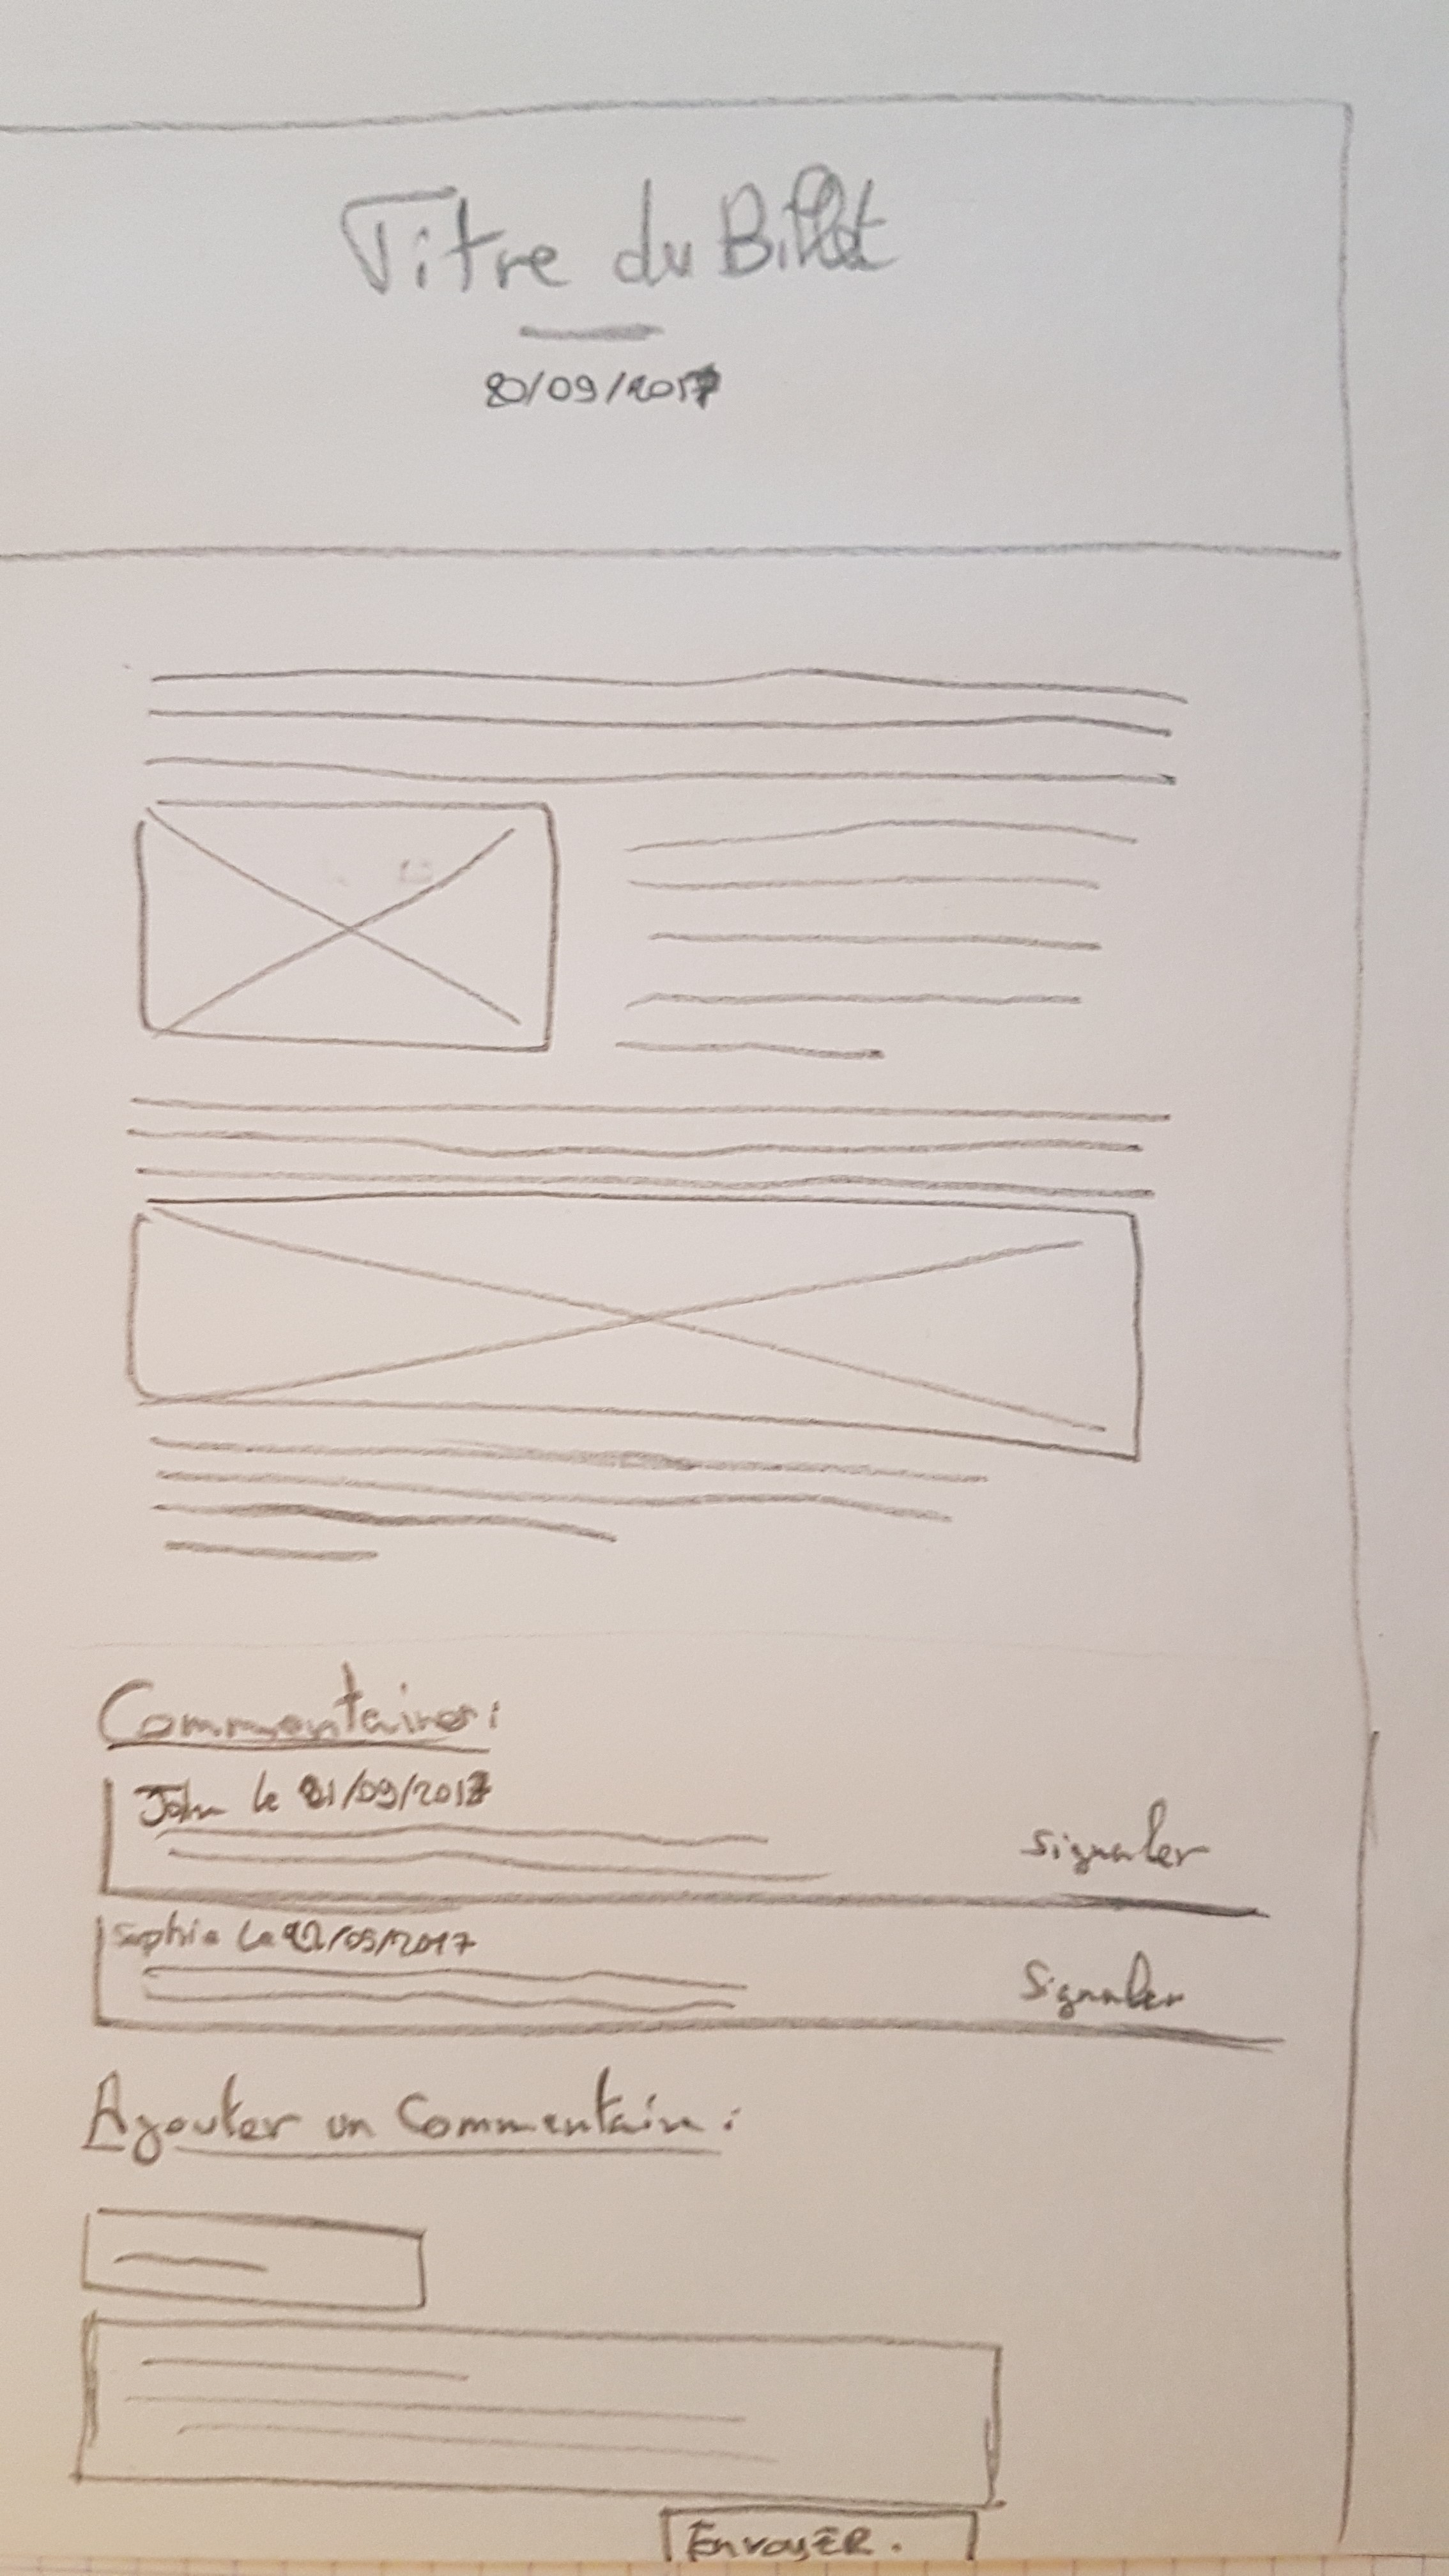 Titre du Billet
20/09/2017
Commentaires:
John le 21/09/2017
signaler
Sophie le 22/09/2017
Signaler
Ajouter un Commentaire:
EnvoyER.